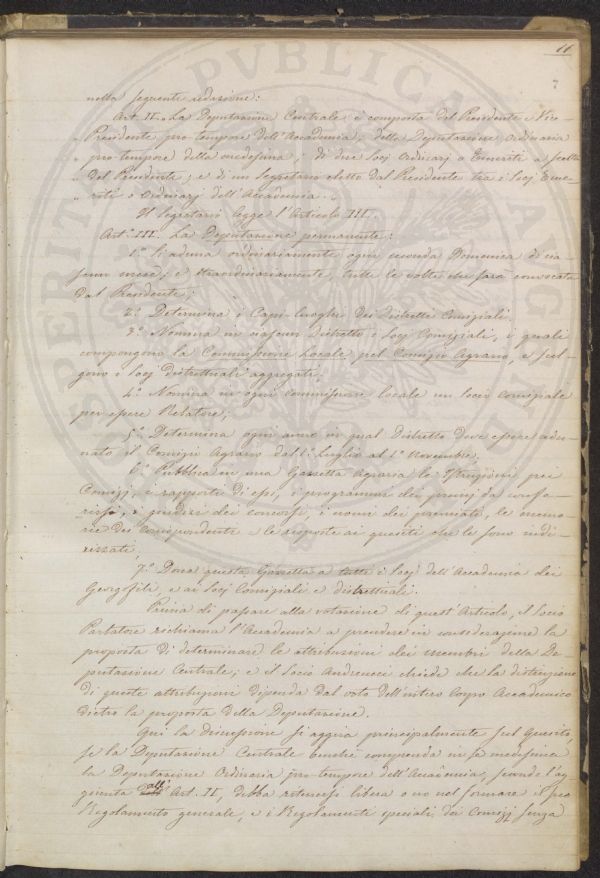 11
7
nella seguente redazione:
Art. II. La Deputazione Centrale è composta del Presidente e Vice-
Presidente pro tempore dell'Accademia, della Deputazione Ordinaria
pro tempore della medesima; di due Socj Ordinarj o Emeriti a scelta
del Presidente; e di un Segretario eletto dal Presidente tra i Socj Eme-
riti o Ordinarj dell'Accademia.
Il Segretario legge l'Articolo III.
Art. III. La Deputazione permanente:
1.º Si aduna ordinariamente ogni seconda Domenica di cia-
scun mese, e straordinariamente tutte le volte che sarà convocata
dal Presidente;
2.º Determina i Capi-luoghi dei Distretti Comiziali,
3.º Nomina in ciascun Distretto i Socj Comiziali, i quali
compongono la Commissione Locale pel Comizio Agrario, e scel-
gono i Socj distrettuali aggregati.
4.º Nomina in ogni commissione locale un Socio comiziale
per essere Relatore;
5.º Determina ogni anno in qual Distretto deve essere adu-
nato il Comizio Agrario dall'1.º Luglio al 1.º Novembre.
6.º Pubblica in una Gazzetta Agraria le Istruzioni pei
Comizj, i rapporti di essi, i programmi dei premj da confe-
rirsi, i giudizi dei concorsi, i nomi dei premiati, le memo-
rie dei corrispondenti e le risposte ai quesiti che le sono indi-
rizzati.
7.º Dona questa Gazzetta a tutti i Socj dell'Accademia dei
Georgofili, e ai Socj Comiziali e distrettuali.
Prima di passare alla votazione di quest'Articolo, il Socio
Parlatore richiama l'Accademia a prendere in considerazione la
proposta di determinare le attribuzioni dei membri della De-
putazione Centrale; e il Socio Andreucci chiede che la distinzione
di queste attribuzioni dipenda dal voto dell'intiero Corpo Accademico
dietro la proposta della Deputazione.
Qui la discussione si aggira principalmente sul quesito,
se la Deputazione Centrale benchè comprenda in se medesima
la Deputazione Ordinaria pro tempore dell'Accademia, secondo l'ag-
giunta all'Art. II, debba ritenersi libera o no nel formare il suo
Regolamento generale, e i Regolamenti speciali dei Comizj senza